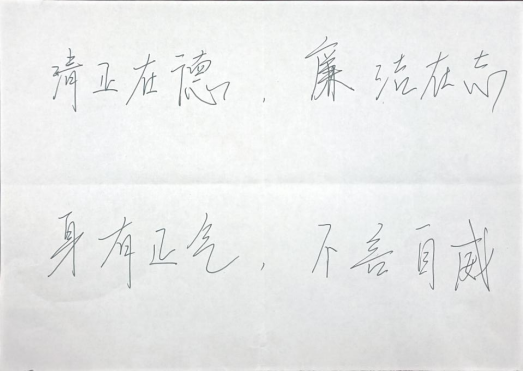 清正在德，廉洁在志
身有正气，不言自威